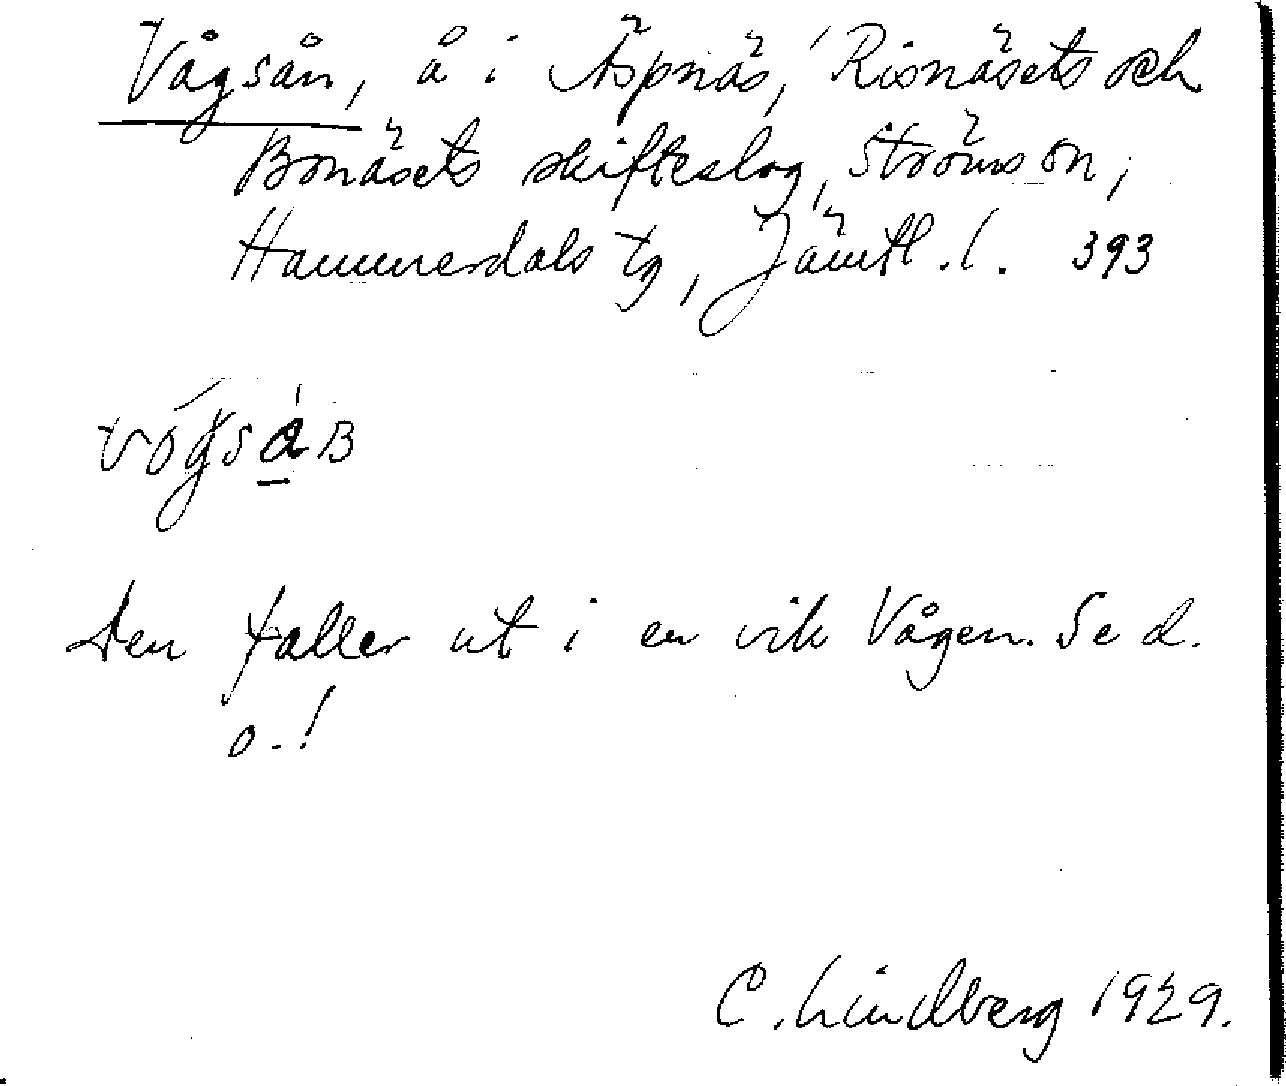 Vågsån, å i Äspnäs, Risnäsets och
Bonäsets skifteslag, Ströms sn,
Hammerdals tg, Jämtl. l. 393
Den faller ut i en vik Vågen. Se d.
o.!
C. Lindberg 1929.